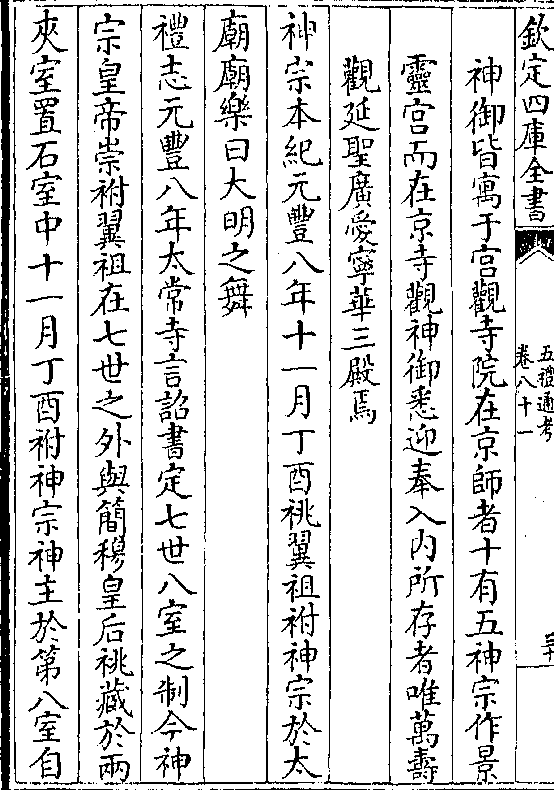 欽定四庫全書
五禮通考
卷八十一
三十
神御皆寓于宫觀寺院在京師者十有五神宗作景
靈宫而在京寺觀神御悉迎奉入内所存者唯萬壽
觀延聖廣愛寧華三殿焉
神宗本紀元豐八年十一月丁酉祧翼祖祔神宗於太
廟廟樂曰大明之舞
禮志元豐八年太常寺言詔書定七世八室之制今神
宗皇帝崇祔翼祖在七世之外與簡穆皇后祧藏於兩
夾室置石室中十一月丁酉祔神宗神主於第八室自